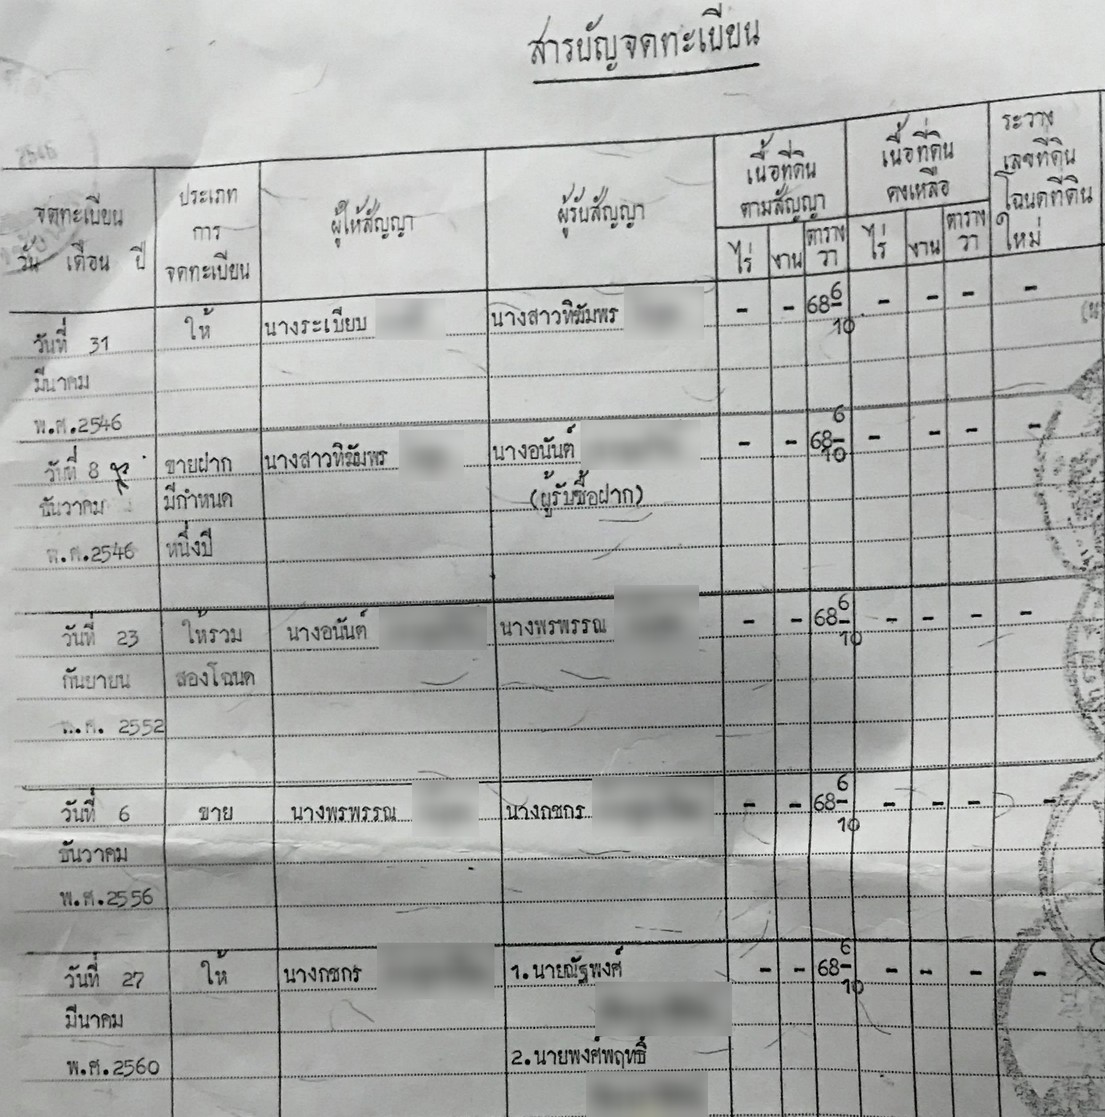 สารบัญจดทะเบียน
จดทะเบียน
วัน เดือน ปี
ประเภท
การ
จดทะเบียน
ผู้ให้สัญญา
ผู้รับสัญญา
เนื้อที่ดิน
ตามสัญญา
ไร่ งาน ตาราง
วา
เนื้อที่ดิน
คงเหลือ
ไร่ งาน ตาราง
วา
ระวาง
เลขที่ดิน
โฉนดที่ดิน
ใหม่
วันที่ 31 ให้ นางระเบียบ นางสาวทิฆัมพร - - 68 6/10 - - - -
มีนาคม
พ.ศ.2546
วันที่ 8 ขายฝาก นางสาวทิฆัมพร นางอนันต์ - - 68 6/10 - - - -
ธันวาคม มีกำหนด (ผู้รับซื้อฝาก)
พ.ศ.2546 หนึ่งปี
วันที่ 23 ให้รวม นางอนันต์ นางพรพรรณ - - 68 6/10 - - - -
กันยายน สองโฉนด
พ.ศ. 2552
วันที่ 6 ขาย นางพรพรรณ นางกชกร - - 68 6/10 - - - -
ธันวาคม
พ.ศ.2556
วันที่ 27 ให้ นางกชกร 1.นายณัฐพงศ์ - - 68 6/10 - - - -
มีนาคม
พ.ศ.2560 2.นายพงศ์พฤทธิ์